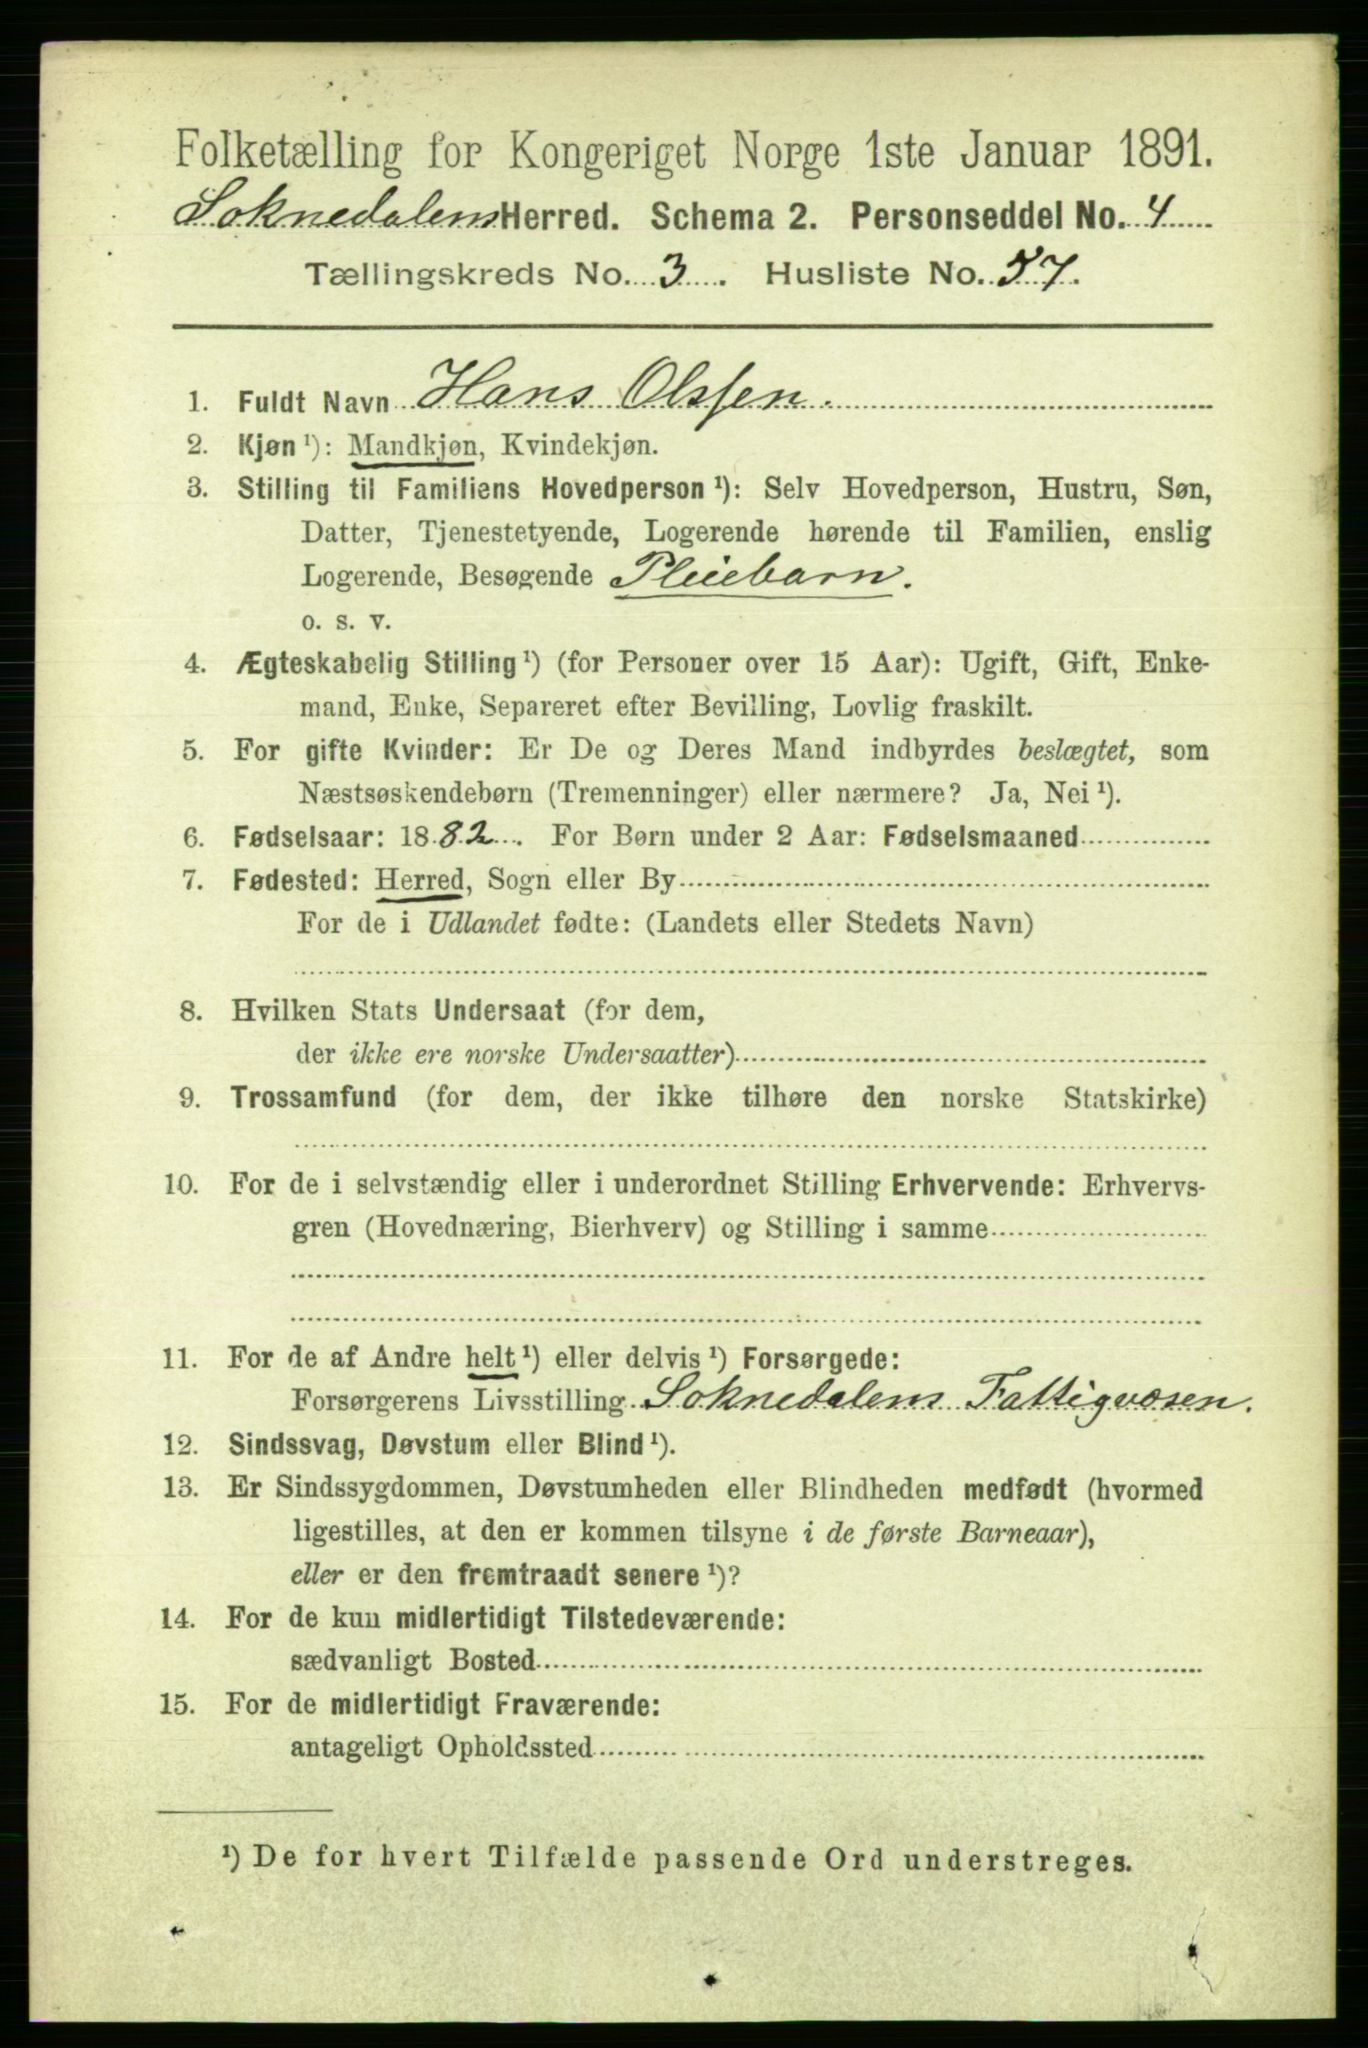 Folketælling for Kongeriget Norge 1ste Januar 1891.
Soknedalens Herred. Schema 2. Personseddel No. 4
Tællingskreds No. 3. Husliste No. 57.
1. Fuldt Navn Hans Olsen.
2. Kjøn ¹): Mandkjøn, Kvindekjøn.
3. Stilling til Familiens Hovedperson ¹): Selv Hovedperson, Hustru, Søn,
Datter, Tjenestetyende, Logerende hørende til Familien, enslig
Logerende, Besøgende Pleiebarn.
o. s. v.
4. Ægteskabelig Stilling ¹) (for Personer over 15 Aar): Ugift, Gift, Enke-
mand, Enke, Separeret efter Bevilling, Lovlig fraskilt.
5. For gifte Kvinder: Er De og Deres Mand indbyrdes beslægtet, som
Næstsøskendebørn (Tremenninger) eller nærmere? Ja, Nei ¹).
6. Fødselsaar: 1882. For Børn under 2 Aar: Fødselsmaaned
7. Fødested: Herred, Sogn eller By
For de i Udlandet fødte: (Landets eller Stedets Navn)
8. Hvilken Stats Undersaat (for dem,
der ikke ere norske Undersaatter)
9. Trossamfund (for dem, der ikke tilhøre den norske Statskirke)
10. For de i selvstændig eller i underordnet Stilling Erhvervende: Erhvervs-
gren (Hovednæring, Bierhverv) og Stilling i samme
11. For de af Andre helt ¹) eller delvis ¹) Forsørgede:
Forsørgerens Livsstilling Soknedalens Fattigvæsen.
12. Sindssvag, Døvstum eller Blind ¹).
13. Er Sindssygdommen, Døvstumheden eller Blindheden medfødt (hvormed
ligestilles, at den er kommen tilsyne i de første Barneaar),
eller er den fremtraadt senere ¹)?
14. For de kun midlertidigt Tilstedeværende:
sædvanligt Bosted
15. For de midlertidigt Fraværende:
antageligt Opholdssted
¹) De for hvert Tilfælde passende Ord understreges.